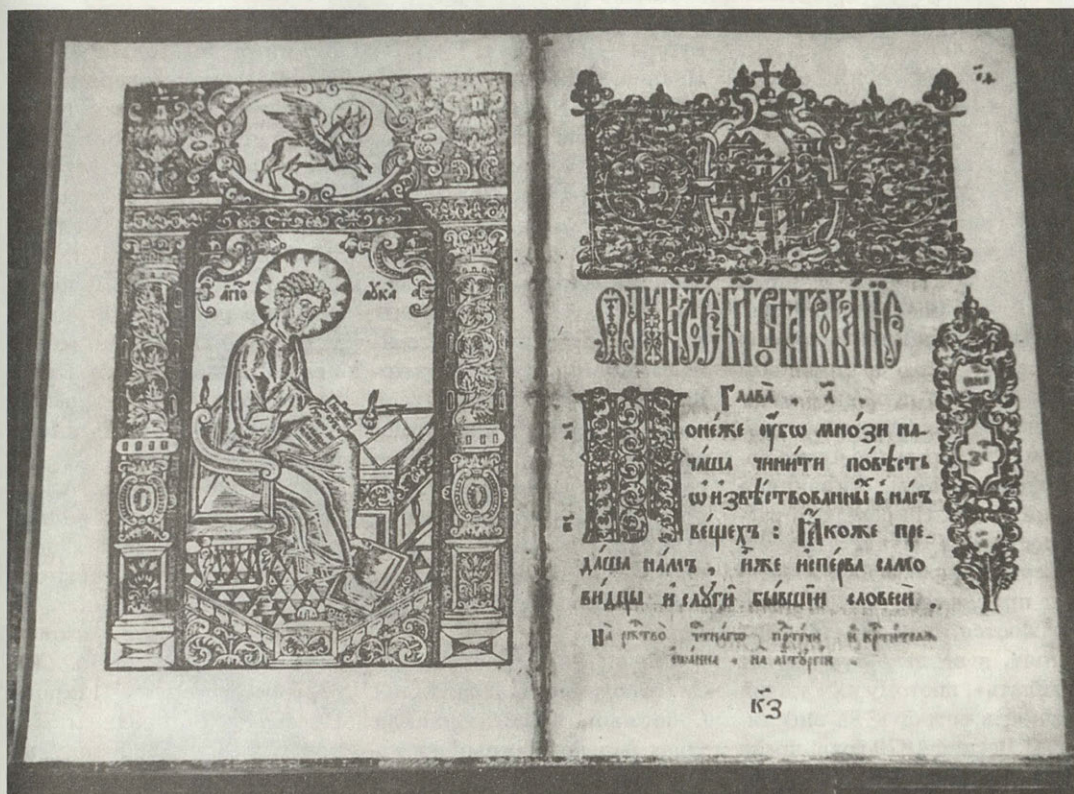 АПО ЛУКА
Глава̀ . а҃ .
Поне́же ᲂу҆́бѡ мно́зи на-
ча́ша чини́ти по́вѣсть
ѡ҆ и҆звѣ́ствованныⷯ в на́съ
ве́щехъ : Ꙗ҆́коже пре-
да́ша на́мъ , и҆̀же и҆спе́рва само
ви́дцы и҆ слꙋги̑ бы́вшїи словесѐ .
На̀ ржⷭ҇тво̀ чⷭ҇тна́гѡ прⷣте́чи и҆ крⷭ҇ти́телѧ
і҆ѡа́нна . на лїтꙋргі́и .
к҃з